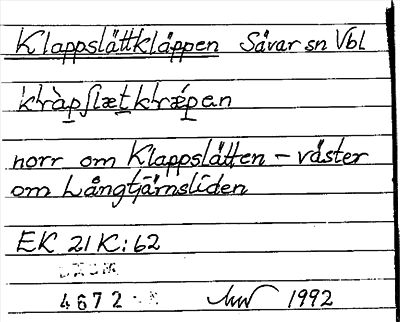 Klappslättkläppen Sävar sn Vbl
kràpʃlætkrǽpan
norr om Klappslätten - väster
om Långtjärnsliden
EK 21K:62
4672
1992